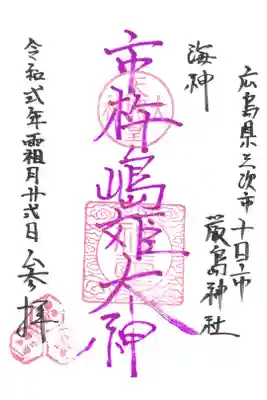 広島県三次市十日市
厳島神社
海神
市杵嶋姫大神
令和弍年霜月廿弍日参拝